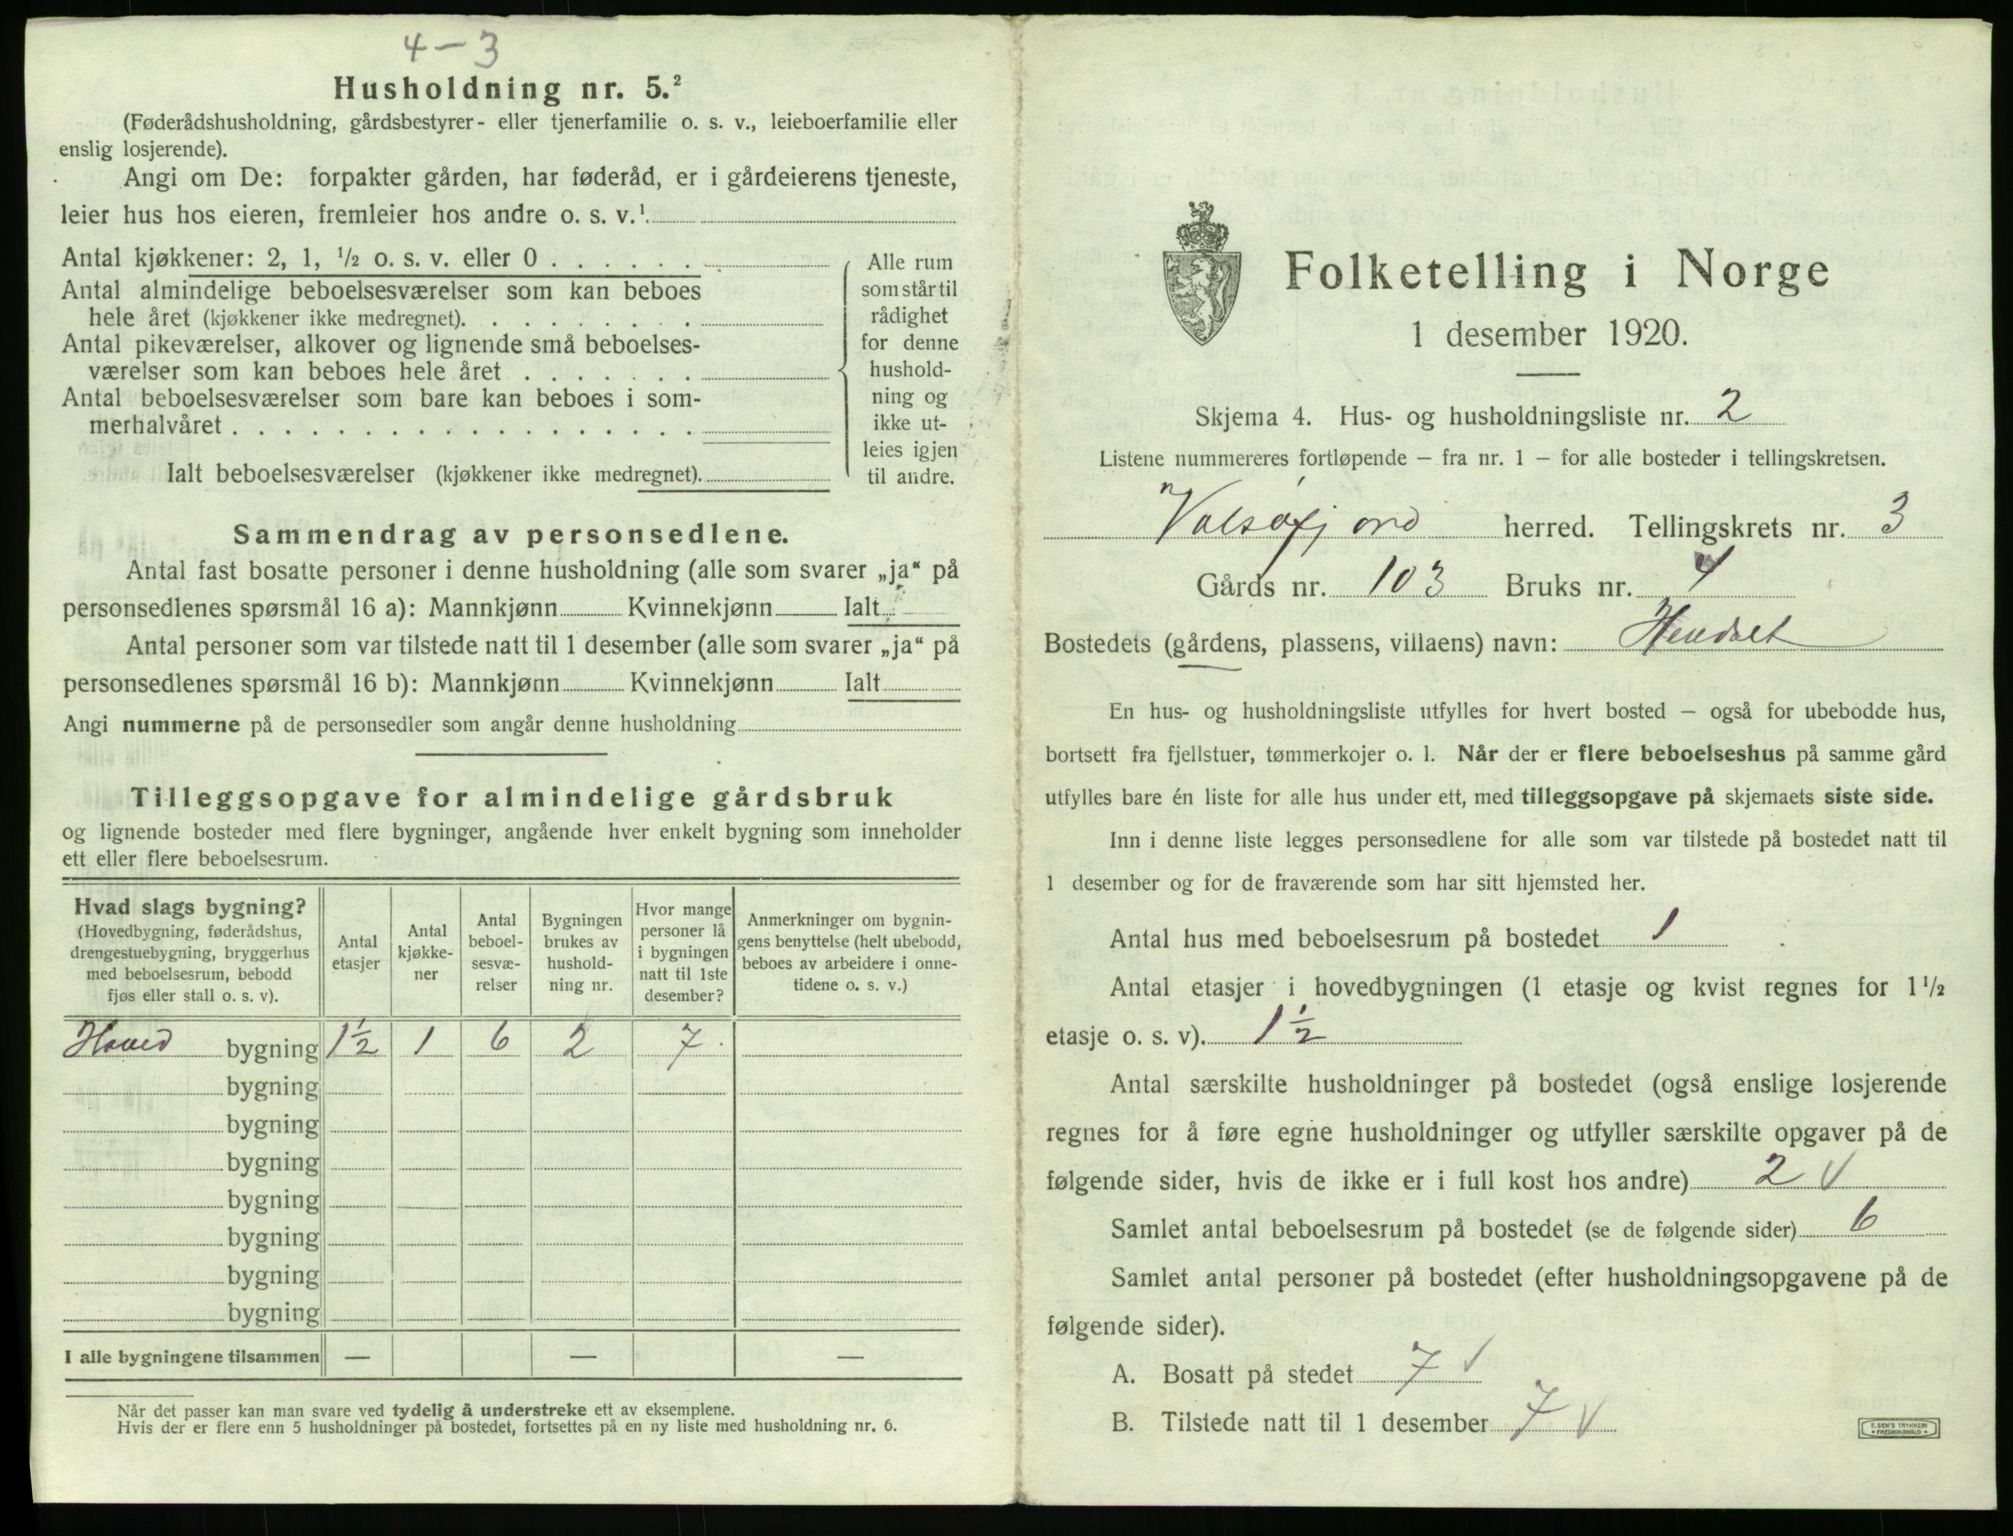 4-3
Husholdning nr. 5.²
(Føderådshusholdning, gårdsbestyrer- eller tjenerfamilie o. s. v., leieboerfamilie eller
enslig losjerende).
Angi om De: forpakter gården, har føderåd, er i gårdeierens tjeneste,
leier hus hos eieren, fremleier hos andre o. s. v.¹
Antal kjøkkener: 2, 1, ½ o. s. v. eller 0
Antal almindelige beboelsesværelser som kan beboes
hele året (kjøkkener ikke medregnet).
Antal pikeværelser, alkover og lignende små beboelses-
værelser som kan beboes hele året
Antal beboelsesværelser som bare kan beboes i som-
merhalvåret
Ialt beboelsesværelser (kjøkkener ikke medregnet).
Alle rum
som står til
rådighet
for denne
hushold-
ning og
ikke ut-
leies igjen
til andre.
Sammendrag av personsedlene.
Antal fast bosatte personer i denne husholdning (alle som svarer „ja“ på
personsedlenes spørsmål 16 a): Mannkjønn Kvinnekjønn Ialt
Antal personer som var tilstede natt til 1 desember (alle som svarer „ja“ på
personsedlenes spørsmål 16 b): Mannkjønn Kvinnekjønn Ialt
Angi nummerne på de personsedler som angår denne husholdning
Tilleggsopgave for almindelige gårdsbruk
og lignende bosteder med flere bygninger, angående hver enkelt bygning som inneholder
ett eller flere beboelsesrum.
Hvad slags bygning?
(Hovedbygning, føderådshus,
drengestuebygning, bryggerhus
med beboelsesrum, bebodd
fjøs eller stall o. s. v).
Antal
etasjer
Antal
kjøkke-
ner
Antal
beboel-
sesvæ-
relser
Bygningen
brukes av
hushold-
ning nr.
Hvor mange
personer lå
i bygningen
natt til 1ste
desember?
Anmerkninger om bygnin-
gens benyttelse (helt ubebodd,
beboes av arbeidere i onne-
tidene o. s. v.)
Hoved bygning 1½ 1 6 2 7
bygning
bygning
bygning
bygning
bygning
bygning
bygning
I alle bygningene tilsammen — — —
Når det passer kan man svare ved tydelig å understreke ett av eksemplene.
Hvis der er flere enn 5 husholdninger på bostedet, fortsettes på en ny liste med husholdning nr. 6.
Folketelling i Norge
1 desember 1920.
Skjema 4. Hus- og husholdningsliste nr. 2
Listene nummereres fortløpende – fra nr. 1 – for alle bosteder i tellingskretsen.
Valsøfjord herred. Tellingskrets nr. 3
Gårds nr. 103 Bruks nr. 4
Bostedets (gårdens, plassens, villaens) navn: Hendset
En hus- og husholdningsliste utfylles for hvert bosted – også for ubebodde hus,
bortsett fra fjellstuer, tømmerkojer o. l. Når der er flere beboelseshus på samme gård
utfylles bare én liste for alle hus under ett, med tilleggsopgave på skjemaets siste side.
Inn i denne liste legges personsedlene for alle som var tilstede på bostedet natt til
1 desember og for de fraværende som har sitt hjemsted her.
Antal hus med beboelsesrum på bostedet 1
Antal etasjer i hovedbygningen (1 etasje og kvist regnes for 1½
etasje o. s. v). 1½
Antal særskilte husholdninger på bostedet (også enslige losjerende
regnes for å føre egne husholdninger og utfyller særskilte opgaver på de
følgende sider, hvis de ikke er i full kost hos andre) 2 V
Samlet antal beboelsesrum på bostedet (se de følgende sider) 6
Samlet antal personer på bostedet (efter husholdningsopgavene på de
følgende sider).
A. Bosatt på stedet 7 V
B. Tilstede natt til 1 desember 7 V